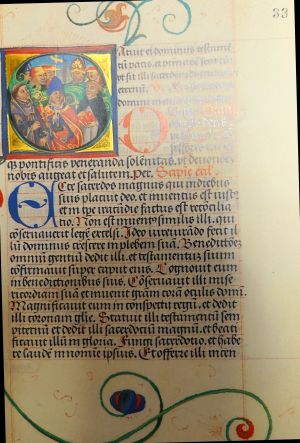 33
Statuit ei dominus testamen
tū pacis et principem fecit eū
ut sit illi sacerdocii
eternum
domini
O
q̄s pontificis veneranda solenitas. et devocionē
nobis augeat et salutem. per. Sapie eccl.
Ecce sacerdos magnus qui in diebus
suis placuit deo. et inventus est iust⁹
et in tpe iracūdie factus est recōcilia
tio. Non est inventus similis illi. qui
cōservavit legē excelsi. Ideo iureiurādo fecit il
lū dominus crescere in plebem suā. Benedictiōez
omniū gentiū dedit illi. et testamentū suum
cōfirmavit super caput eius. Cognovit eum
in benedictionibus suis. Cōservavit illi mise
ricordiam suā et invenit gratiam corā oculis domī.
Magnificavit eum in conspectu regū. et dedit
illi coronam glie. Statuit illi testamentū sem
piternū et dedit illi sacerdociū magnū. et beati
ficavit illū in gloria. Fungi sacerdocio. et habe
re laudē in nomine ipsius. Et offerre illi incen